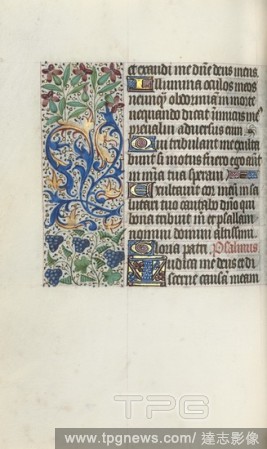 et exaudi me dñe deus meus.
Illumina oculos meos
ne unq̃ obdormiã in morte
nequando dicat inimicus me⁹
prevalui adversus eum
Qui tribulant me exulta
bunt si motus fuero ego aut̃
in mĩa tua speravi
Exultavit cor meũ in sa
lutari tuo cantabo dño qui
bona tribuit m̃ et psallam
nomini domini altissimi.
Gloria patri. Psalmus
Iudica me deus et di
scerne causam meam
TPG
www.tpgnews.com / 達志影像